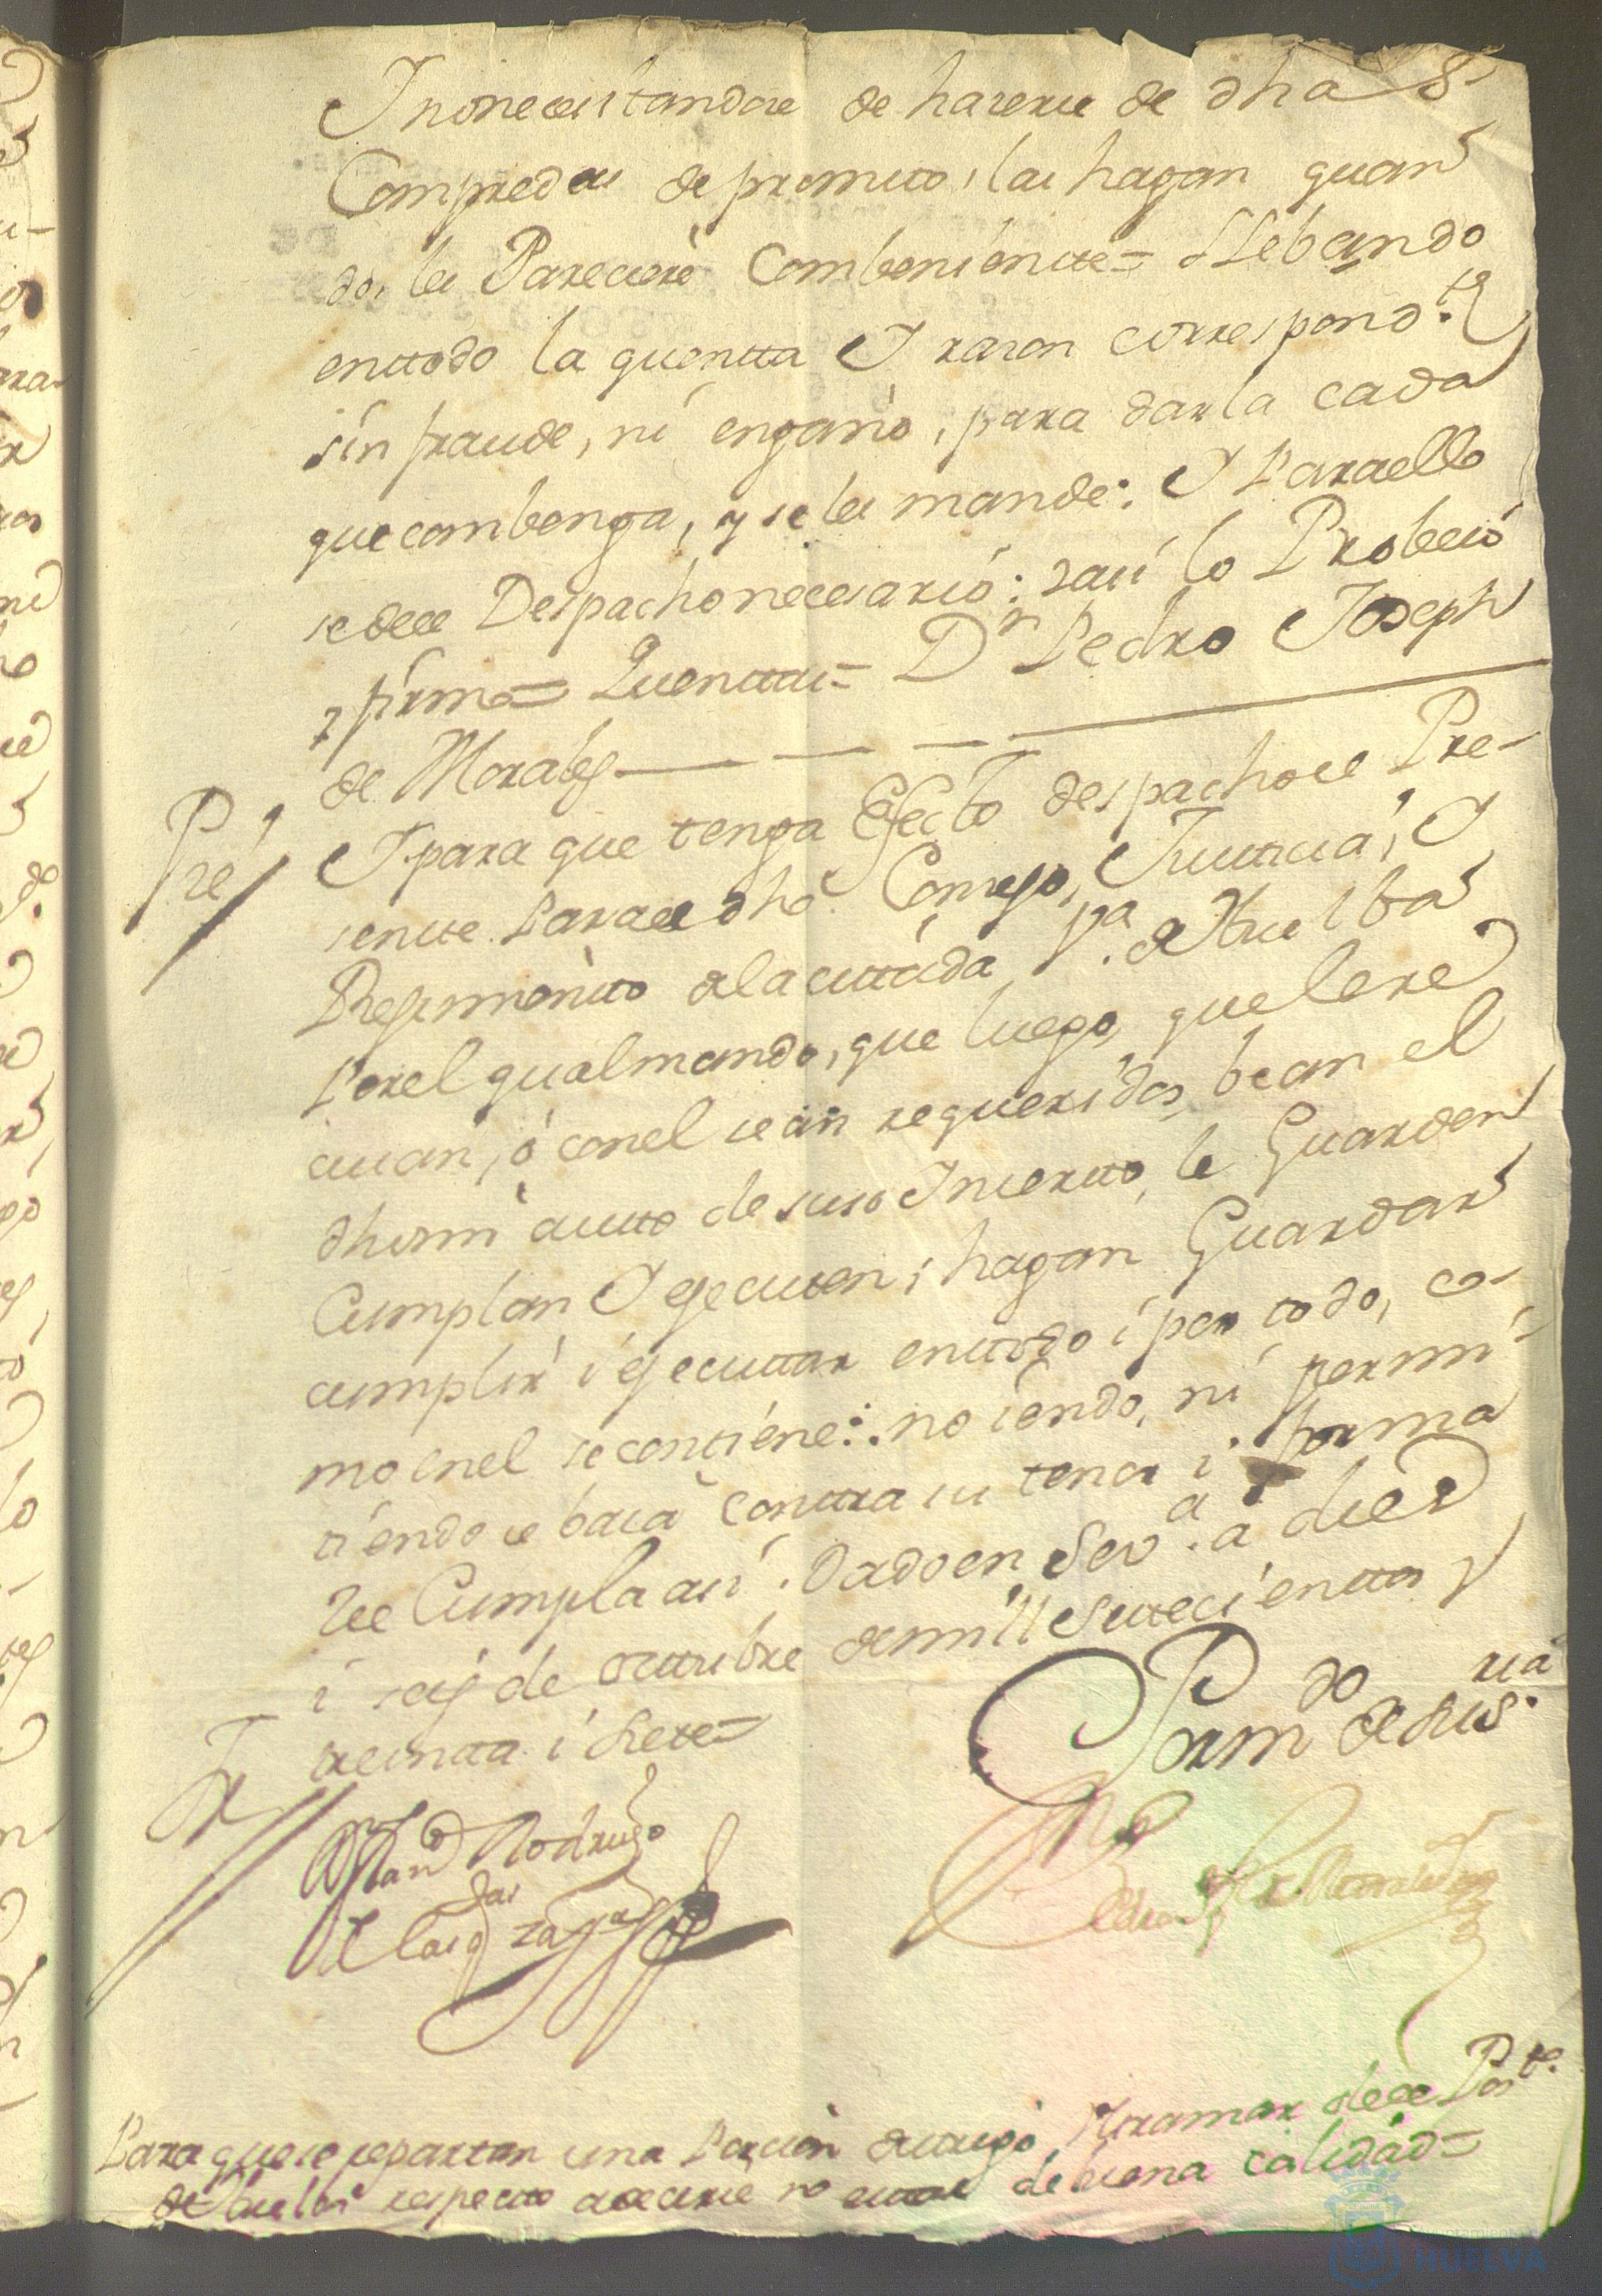 I nonecesitandose de hazerse de dhas
Compredas de prompto, las hagan quan
do, les Pareciere Combeniente = LLebando
enttodo la quentta I razon correspond.te
sin fraude, ni engaño, para darla cada
que combenga, y se les mande: I Paraello
se dee Despacho necesario: i asi lo Probeió
y firmo = Quenttas = Dn Pedro Joseph
de Morales
Pre I para que tenga Efecto despacho el Pre-
sentte Parael dho Consejo, Justticia, I
Regimientto de la cittada Va. de Huelba
Porel qual mando, que luego, que le re
ciuan, ó con el sean requeridos, bean el
dho mi autto de suso Inserto, le Guarden
Cumplan I ejecuten, i hagan Guardar
cumplir i ejecuttar enttodo i por todo, co-
mo en el se contiene: no iendo, ni permi-
tiendo se baia conttra su tenor i forma
Cumpla asi. Dado en Seva. a diez
i seis de octtubre de mill Settecienttos
treintta i siete =
Para que se repartan una Porcion de trigo Ultramar de el Posto.
de Huelba respecto a decirse no estar de buena calidad =
HUELVA